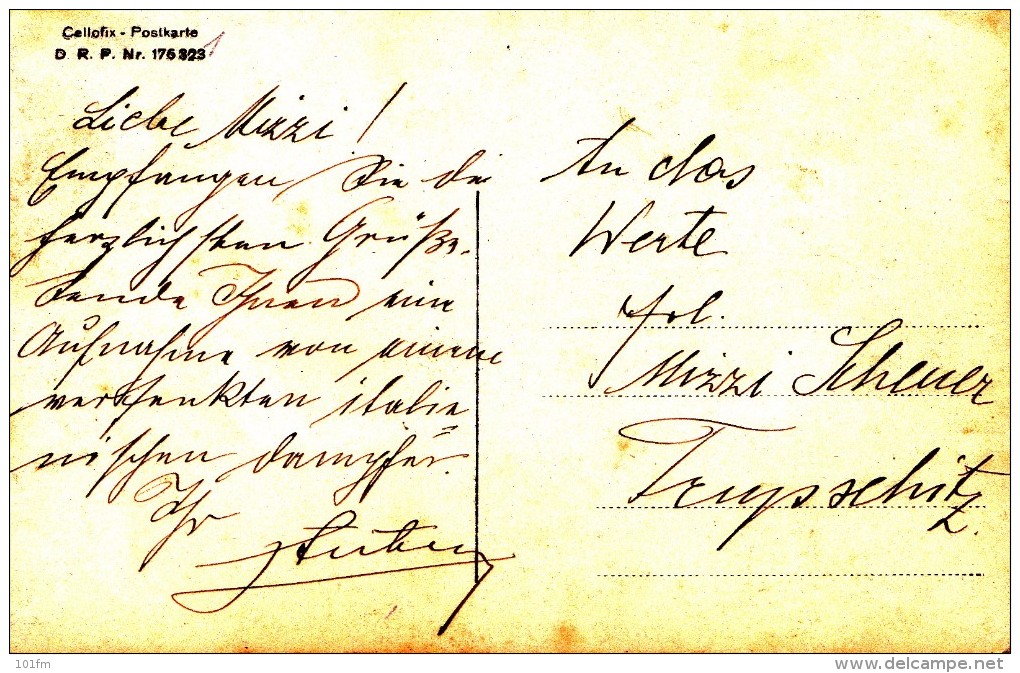 Cellofix - Postkarte
D. R. P. Nr. 176323
Liebe Mizzi!
Empfangen Sie die
herzlichsten Grüße.
Sende Ihnen eine
Aufnahme von einem
versenkten italie
nischen Dampfer.
Ihr
An das
Werte
Frl.
Mizzi Scheuer
Trupschitz.
101fm
www.delcampe.net